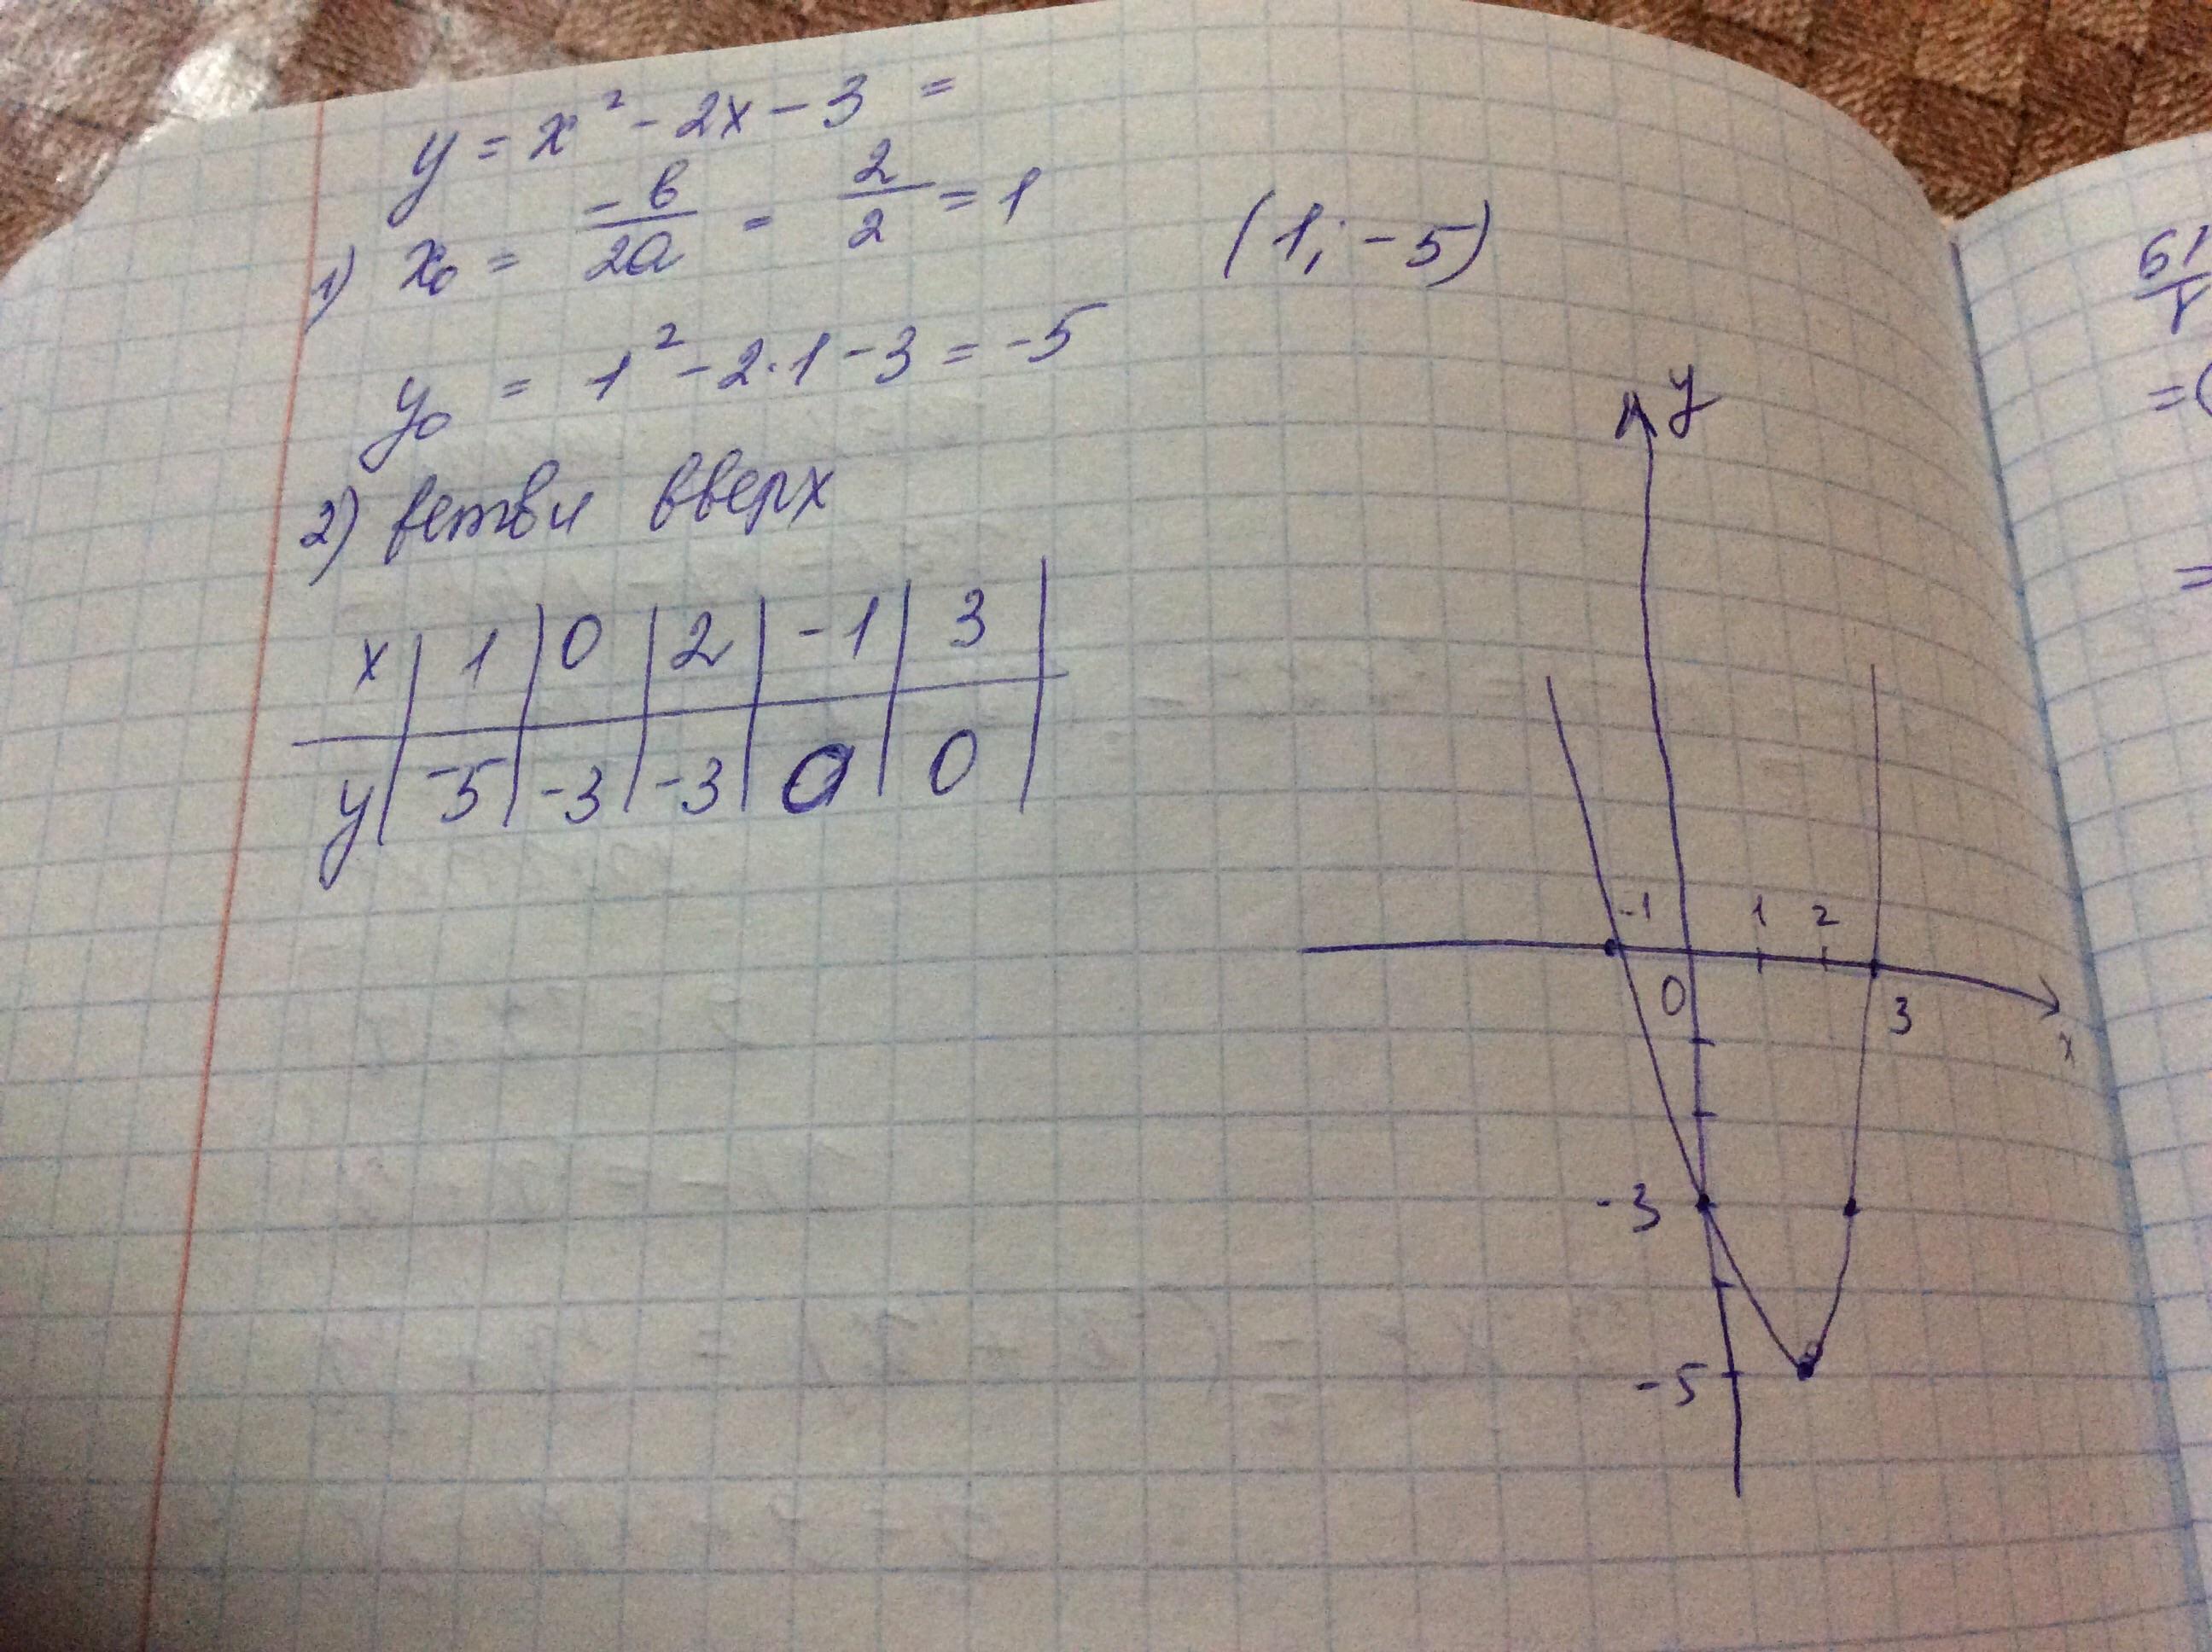 y = x² - 2x - 3 =
1) x₀ = -в/2a = 2/2 = 1
(1; -5)
y₀ = 1² - 2·1 - 3 = -5
2) ветви вверх
x | 1 | 0 | 2 | -1 | 3 |
y | -5 | -3 | -3 | 0 | 0 |
y
-1 1 2
0 3
x
-3
-5
=(
=